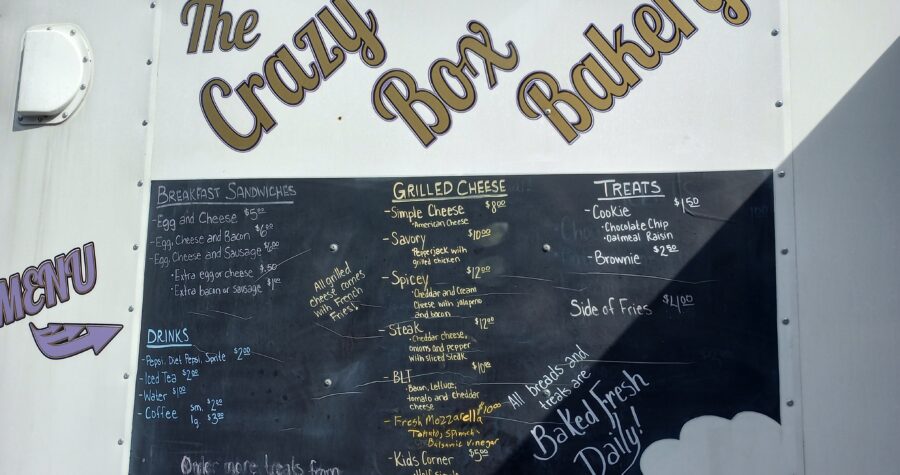 The
Crazy
Box
Bakery
MENU
BREAKFAST SANDWICHES
-Egg and Cheese $5.00
-Egg, Cheese and Bacon $6.00
-Egg, Cheese and Sausage
• Extra egg or cheese $.50
• Extra bacon or sausage $1.00
DRINKS
-Pepsi, Diet Pepsi, Sprite $2.00
-Iced Tea $2.00
-Water $1.00
-Coffee sm. $2.00
lg. $3.00
Order more treats from
All grilled
cheese comes
with French
Fries!
GRILLED CHEESE
-Simple Cheese $8.00
•American Cheese
-Savory $10.00
Pepperjack with
grilled chicken
-Spicey $12.00
•Cheddar and Cream
Cheese with jalapeno
and bacon
-Steak $12.00
•Cheddar cheese,
onions and pepper
with sliced steak
-BLT $10.00
•Bacon, Lettuce,
tomato and cheddar
cheese
-Fresh Mozzarella $10.00
Tomato, Spinach
Balsamic vinegar
-Kids Corner $5.00
TREATS
-Cookie $1.50
•Chocolate Chip
•Oatmeal Raisin
-Brownie $2.50
Side of Fries $4.00
All breads and
treats are
Baked Fresh
Daily!